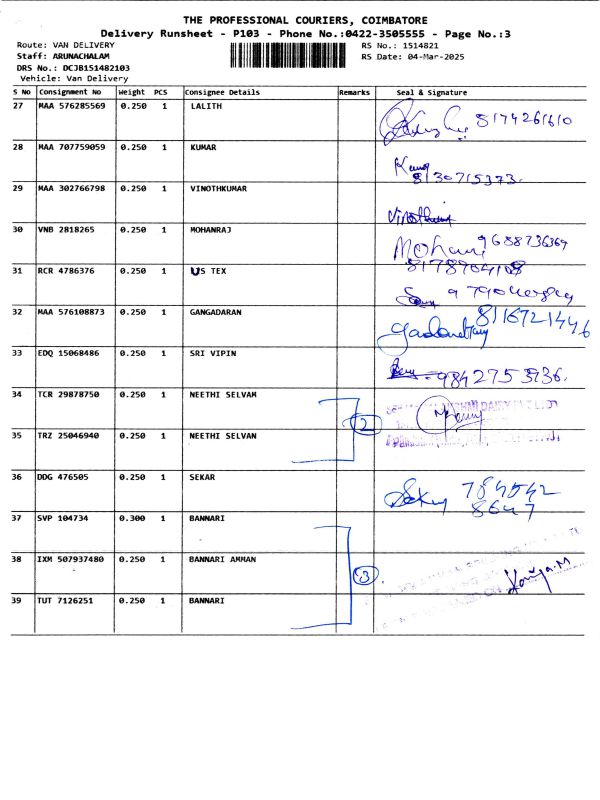 THE PROFESSIONAL COURIERS, COIMBATORE
Delivery Runsheet - P103 - Phone No.:0422-3505555 - Page No.:3
Route: VAN DELIVERY
RS No.: 1514821
Staff: ARUNACHALAM
RS Date: 04-Mar-2025
DRS No.: DCJB151482103
Vehicle: Van Delivery
S No Consignment No Weight PCS Consignee Details Remarks Seal & Signature
27 MAA 576285569 0.250 1 LALITH 8174261610
28 MAA 707759059 0.250 1 KUMAR
8130715373.
29 MAA 302766798 0.250 1 VINOTHKUMAR
Vinothkumar
30 VNB 2818265 0.250 1 MOHANRAJ 9688736369
31 RCR 4786376 0.250 1 US TEX
32 MAA 576108873 0.250 1 GANGADARAN 8116721446
33 EDQ 15068486 0.250 1 SRI VIPIN
9842753936.
34 TCR 29878750 0.250 1 NEETHI SELVAM
2
35 TRZ 25046940 0.250 1 NEETHI SELVAN
36 DDG 476505 0.250 1 SEKAR 784542
8647
37 SVP 104734 0.300 1 BANNARI
38 IXM 507937480 0.250 1 BANNARI AMMAN
3
39 TUT 7126251 0.250 1 BANNARI